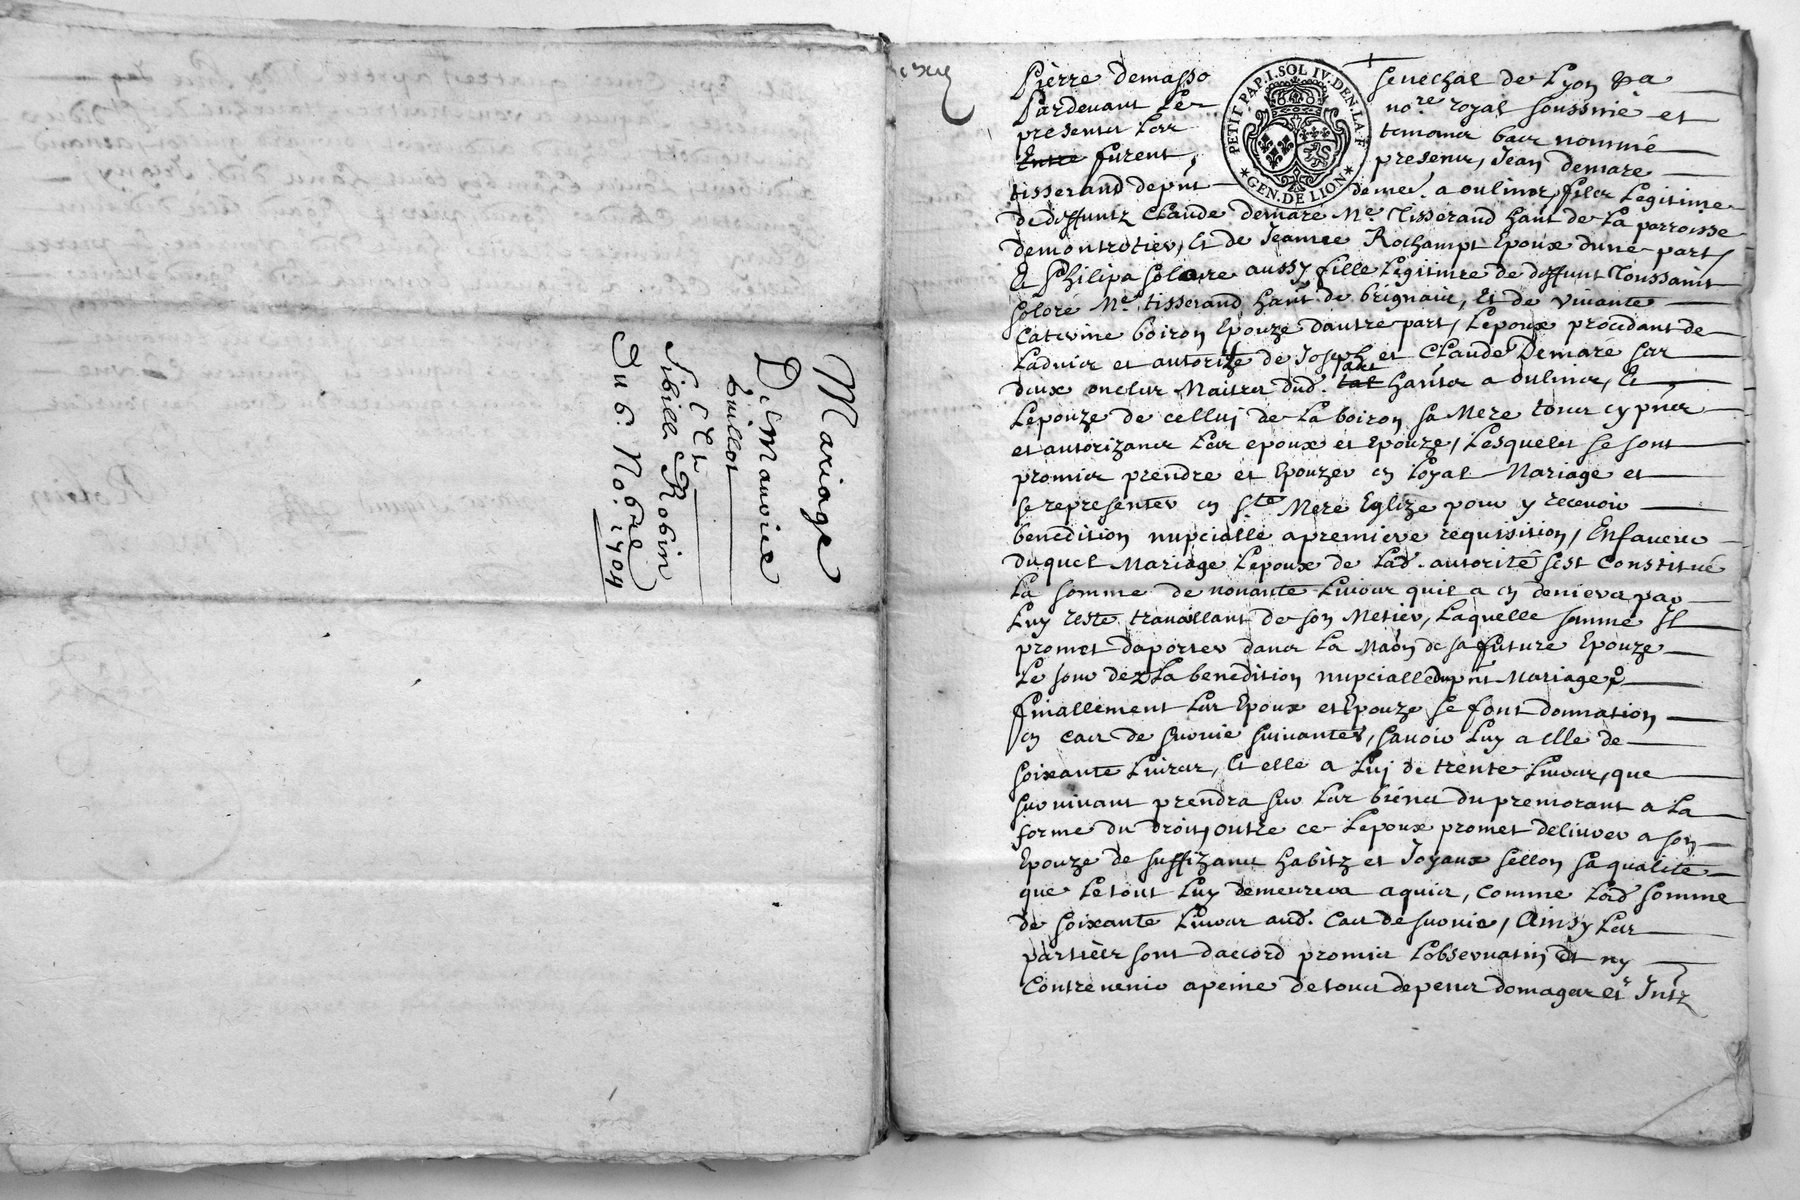 Mariage
De Maurice
buillot
et de
Sibille Robin
Du 6: No.bre 1704
Pierre demasso senechal de Lyon
Pardevant Le no.re royal soussiné et
presents Les temoins bas nommé
Entre furent presens, Jean demare
tisserand de p.nt dem.t a oulins, fils Legitime
de deffuntz Claude demare M.e Tisserand hant de La parroisse
demontrotier, Et de Jeanne Rochampt Epoux dune part,
Et Philipa Solore aussy fille Legitime de deffunt Toussaint
Solore M.e tisserand hant de brignais, Et de vivante
Caterine boiron Epouze dautre part, Lepoux procedant de
Ladvis et autorize de Joseph et Claude Demare ses
deux oncles Maitres dud. art hantes a oulins, Et
Lepouze de celluj de La boiron sa Mere tous cy p.ns
et autorizans Les epoux et Epouze, Lesquelles se sont
promis prendre et Epouzer en Loyal Mariage et
se representer en S.te Mere Eglize pour y recevoir
benedition nupcialle a premiere requisition, En faveur
duquel Mariage Lepoux de Lad. autorité sest Constitué
La somme de nonante Livres quil a en deniers par
Luy reste travaillant de son Metier, Laquelle somme Il
promet daporter dans La maon de sa future Epouze
Le jour de La benedition nupcialle du p.nt Mariage
finallement Les Epoux et Epouze se font donnation
en cas de survie suivantes, savoir Luy a elle de
soixante Livres, Et elle a Luj de trente Livres, que
survivant prendra sur Les biens du premorant a La
forme du droit, outre ce Lepoux promet delivrer a son
Epouze de suffizans habitz et Joyaux sellon sa qualité
que Le tout Luy demeurera aquis, comme Lad somme
de soixante Livres aud. Cas de survie, Ainsy Les
partiees sont daccord promis Lobservation et ny
Contrevenir a peine de tous depens domages et Int.z
PETIT PAP. I. SOL IV. DEN. LA F
GEN. DE LION